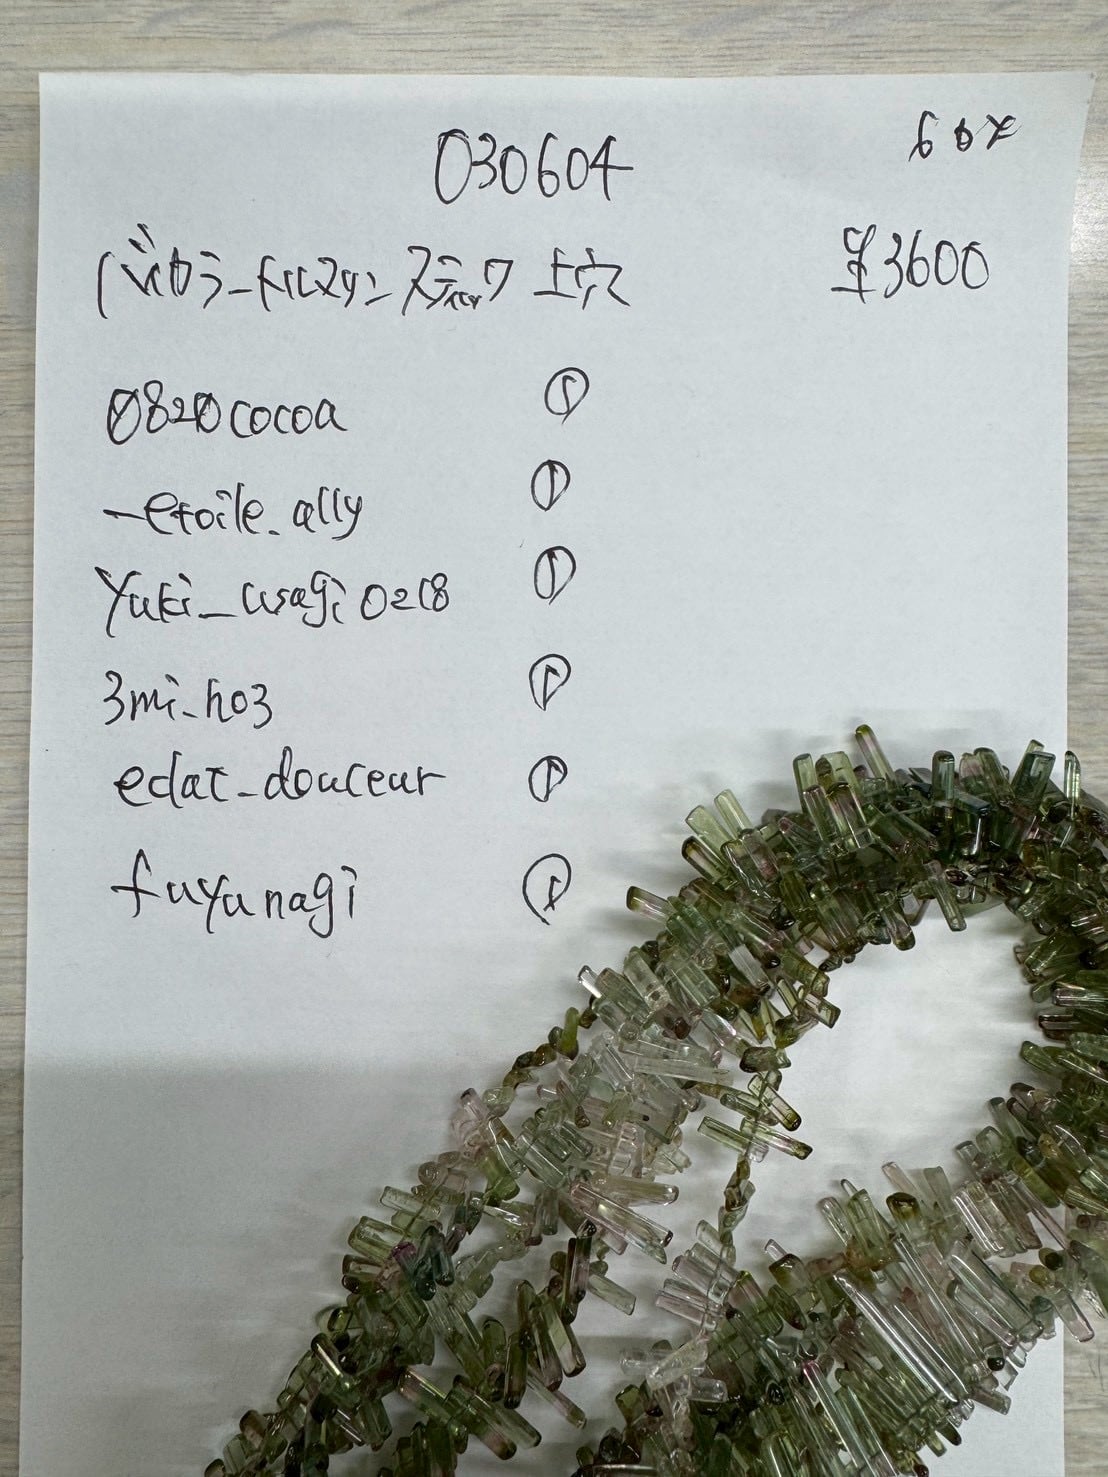 030604
バイカラートルマリン スティック 上穴 ¥3600
0820cocoa ①
_etoile._ally ①
yuki_usagi0218 ①
3mi_ho3 ①
eclat_douceur ①
fuyunagi ①